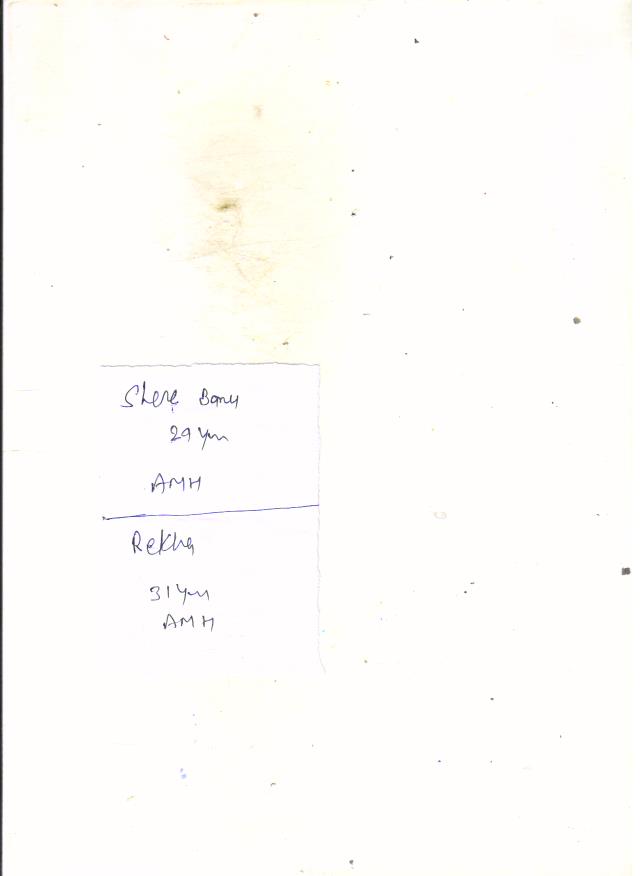 Shere Banu
29 Yrs
AMH
Rekha
31 Yrs
AMH